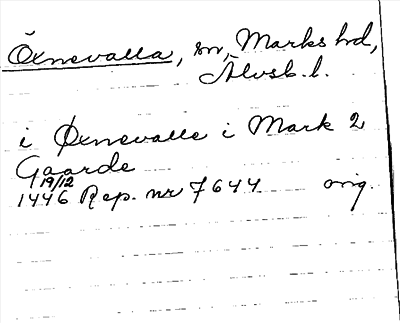 Öxnevalla, sn, Marks hd,
Älvsb. l.
i Øxnevalle i Mark 2
Gaarde
19/12
1446 Rep. nr 7644 orig.